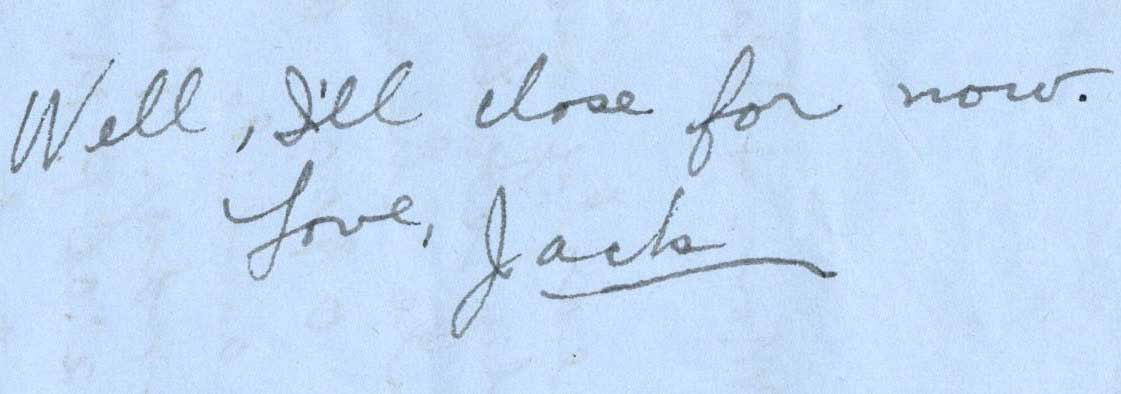 Well, I'll close for now.
Love, Jack